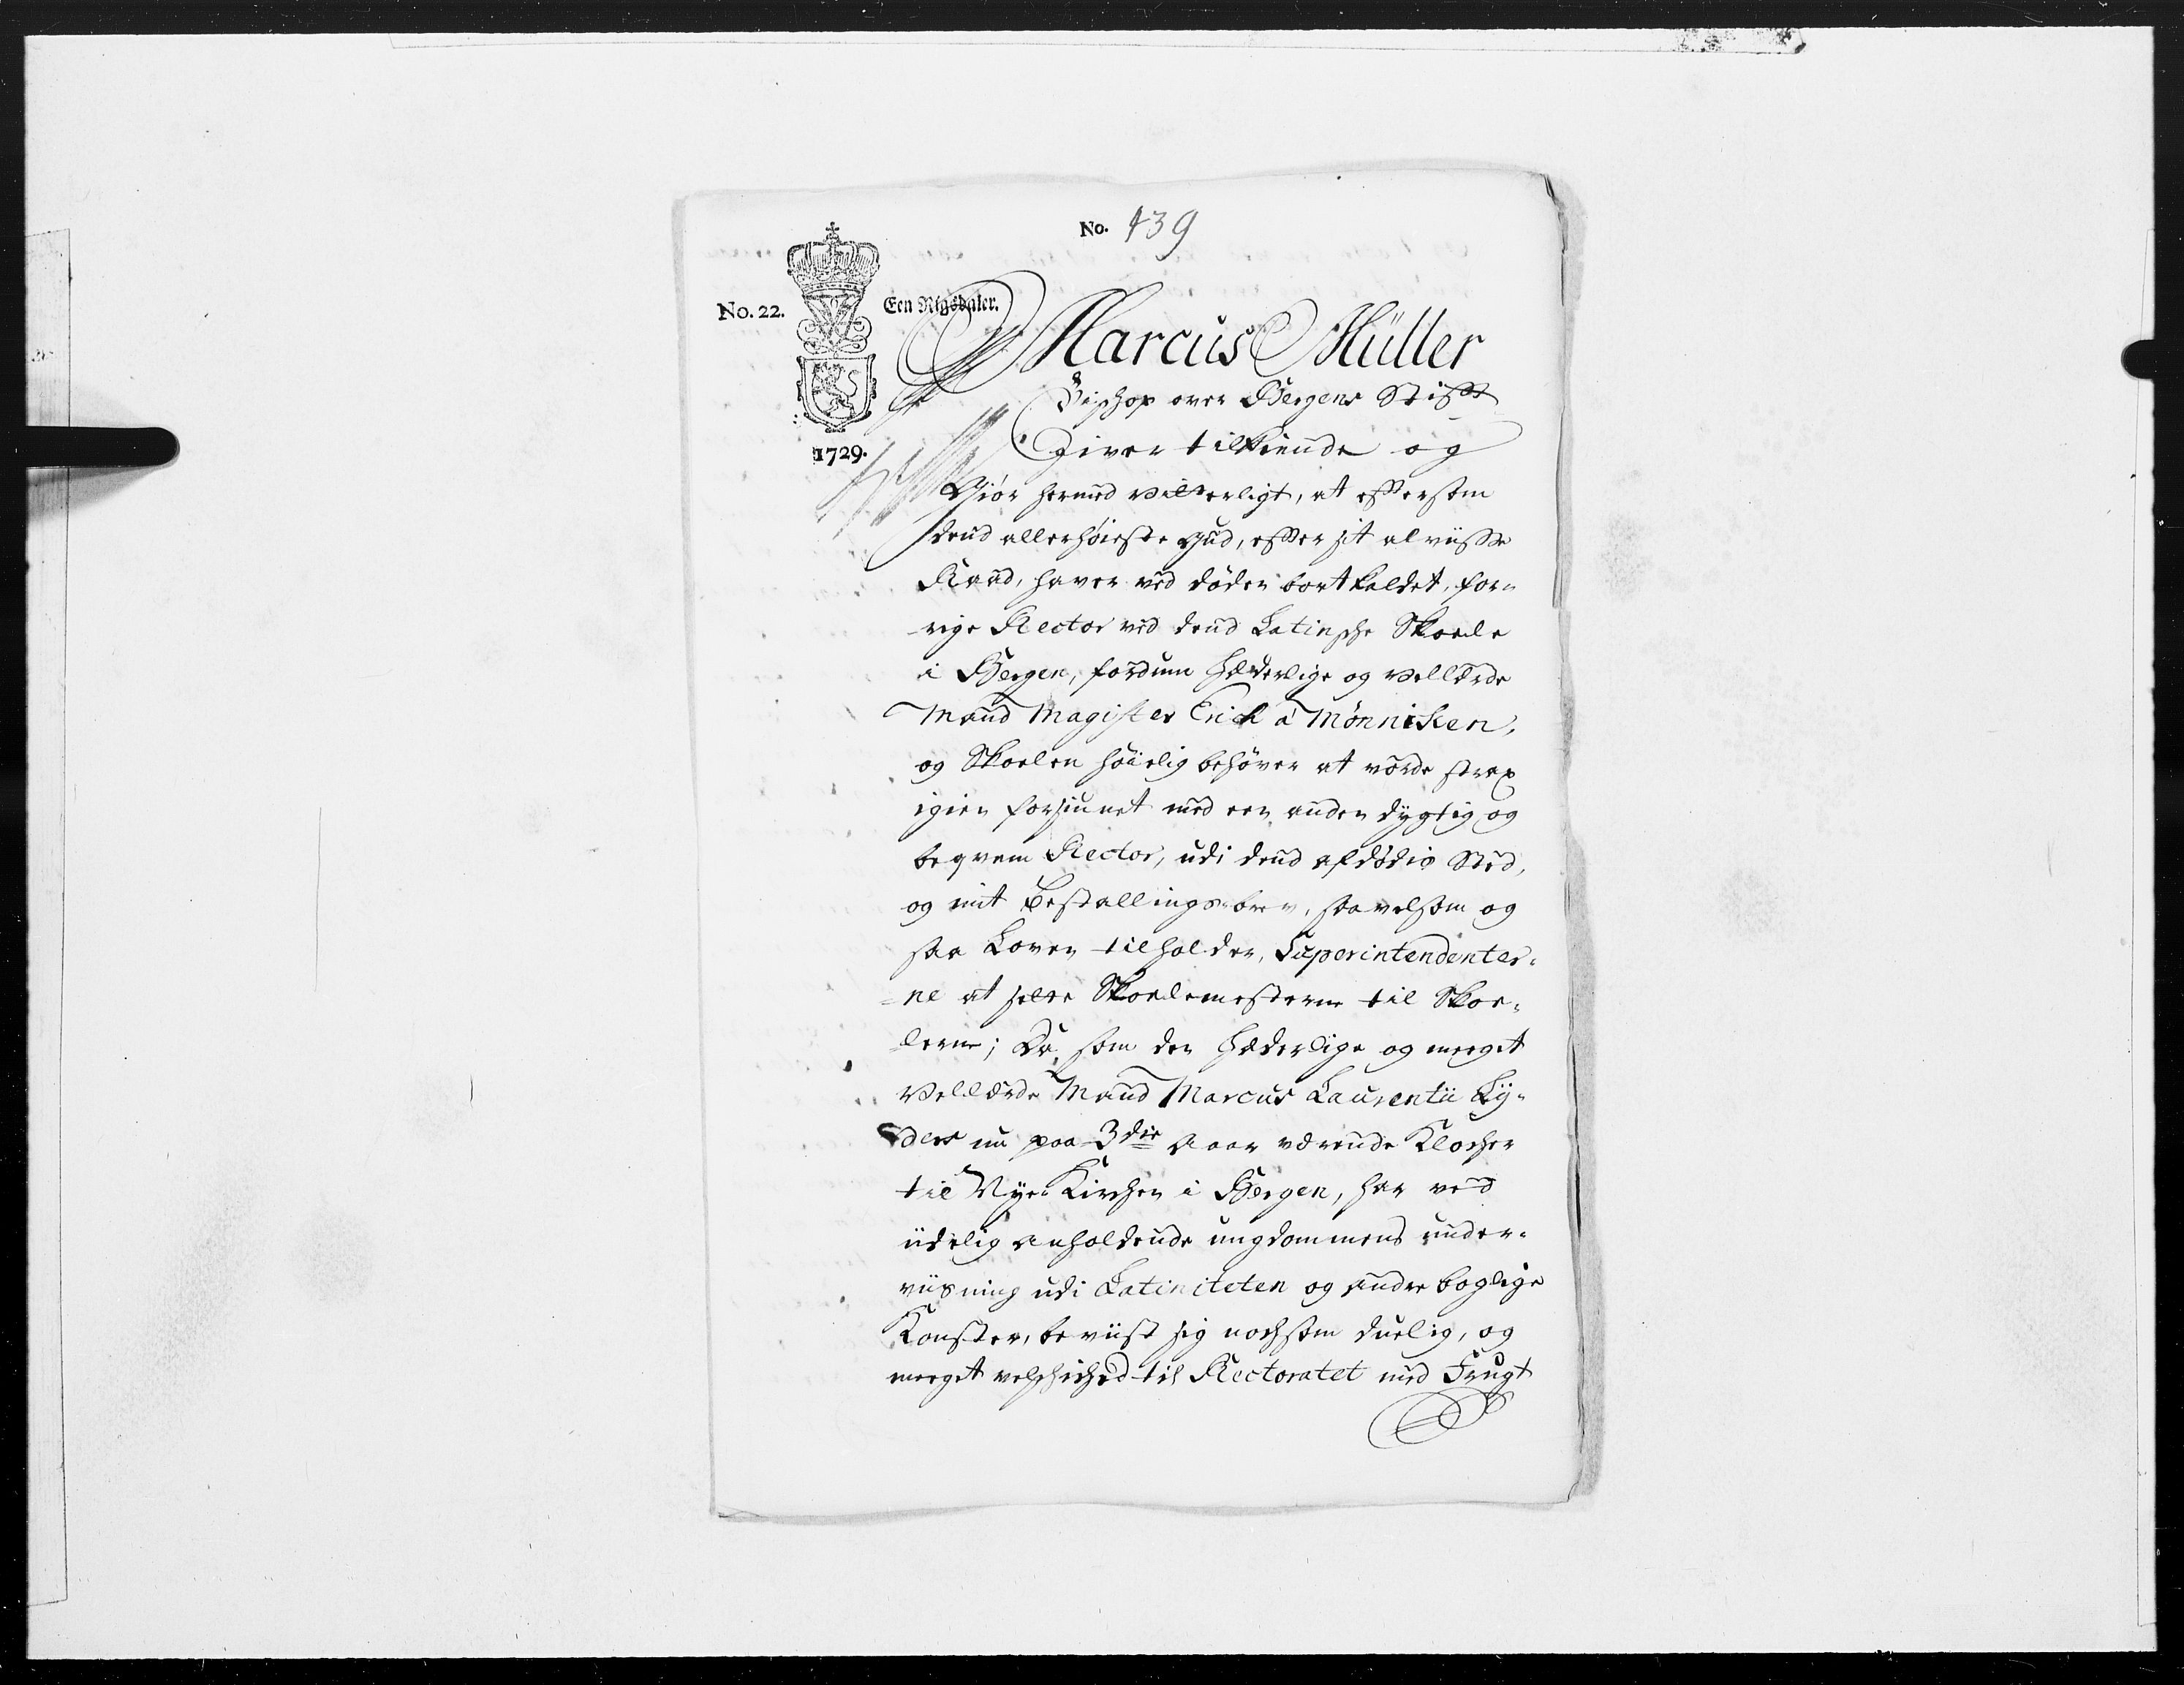 No. 439
No. 22.
Een Rigsdaler.
1729.
Marcus Müller
Bischop over Bergens Stifft
Giver tilkiende og
Giør hermed vitterligt, at effterstem
dend allerhøieste Gud, effter sit alviisse
Raad, haver ved døden bortkaldet, for-
rige Rector ved dend Latinsche Skoele
i Bergen, fordum Hæderlige og vellærde
Mand Magister Erich á Mönniken,
og Skoelen høielig behøver at vorde strax
igien forsiunet med een anden dygtig og
beqvem Rector, udi dend afdødis Sted,
og mit Bestallings-brev, saavelsom og
saa Loven tilholder, Superintendenter-
=ne at sette Skoelemesterne til Skoe-
lerne; Da som den Hæderlige og meeget
Vellærde Mand Marcus Laurentii Ly-
ders nu paa 3die Aar værende Klocher
til Nye-Kirchen i Bergen, har ved
idelig anholdende ungdommens under-
viisning udi Latiniteten og andre boglige
Konster, beviist sig nochsom duelig, og
meeget velschiched til Rectoratet med Frugt